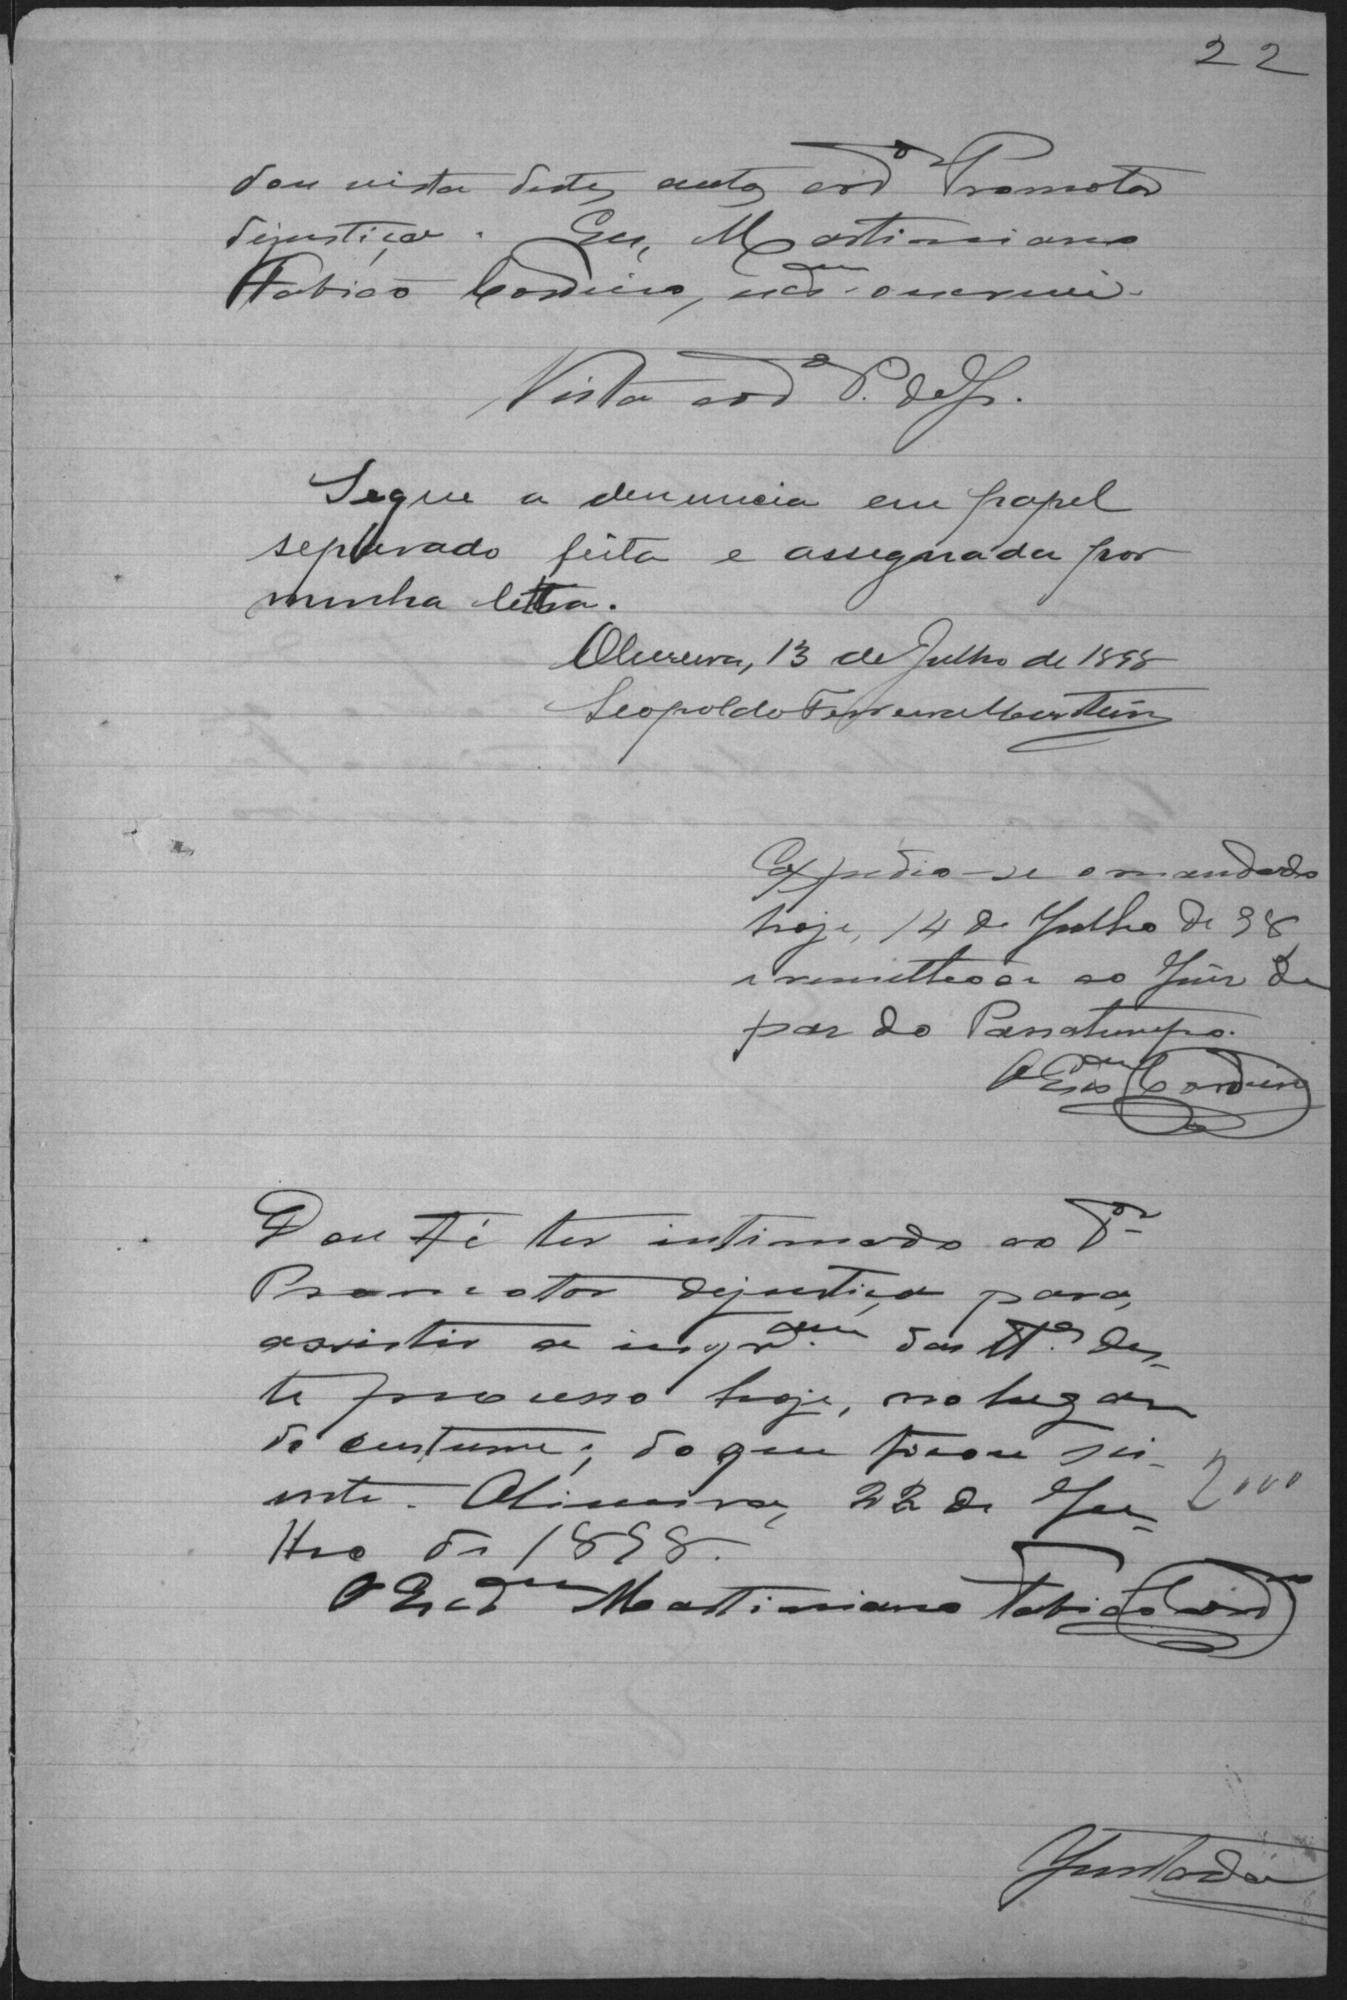 22
dou vista destes autos ao Dr Promotor
dejustiça. Eu, Martimiano
Fabião Cordeiro, escam o escrevi.
Vista ao Dr P. de J.
Segue a denuncia em papel
separado feita e assegnada por
minha lettra.
Oliveira, 13 de Julho de 1898
Leopoldo Ferreira Monteiro
Expedio-se o mandado
hoje, 14 de Julho de 98,
e remetteo-se ao Juiz de
paz do Passatempo.
O Escam Cordeiro
Dou fé ter intimado ao Dr
Promotor dejustiça para,
assistir a inqram das ttas des-
te processo hoje, no lugar
do custume; do que ficou sci-
ente. Oliveira, 22 de Ju-
lho de 1898. 2000
O Escam Martimiano Fabião Cord
Juntada